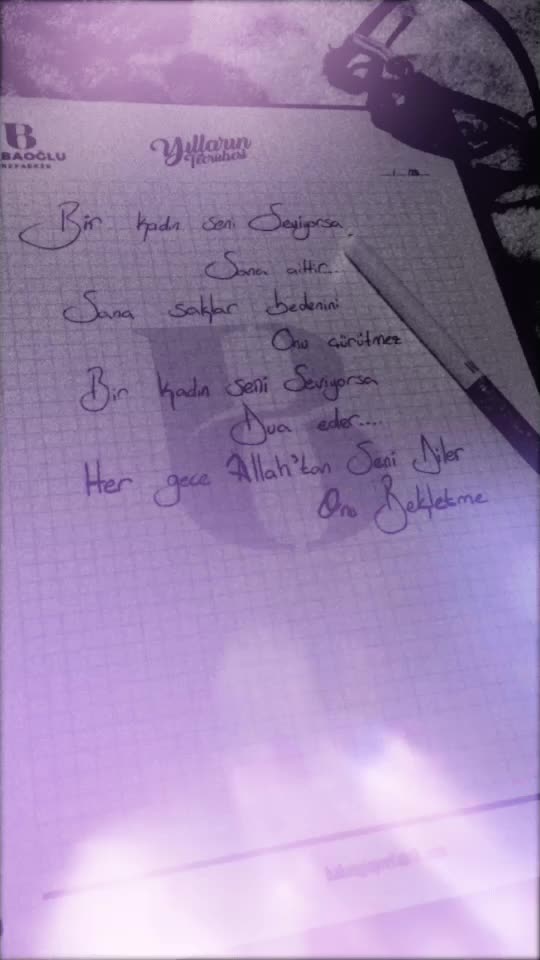 B
BAOĞLU
Yılların
Tecrübesi
Bir kadın seni Seviyorsa
Sana aittir...
Sana saklar bedenini
Onu çürütmez
Bir kadın seni Seviyorsa
Dua eder....
Her gece Allah'tan Seni Diler
Onu Bekletme